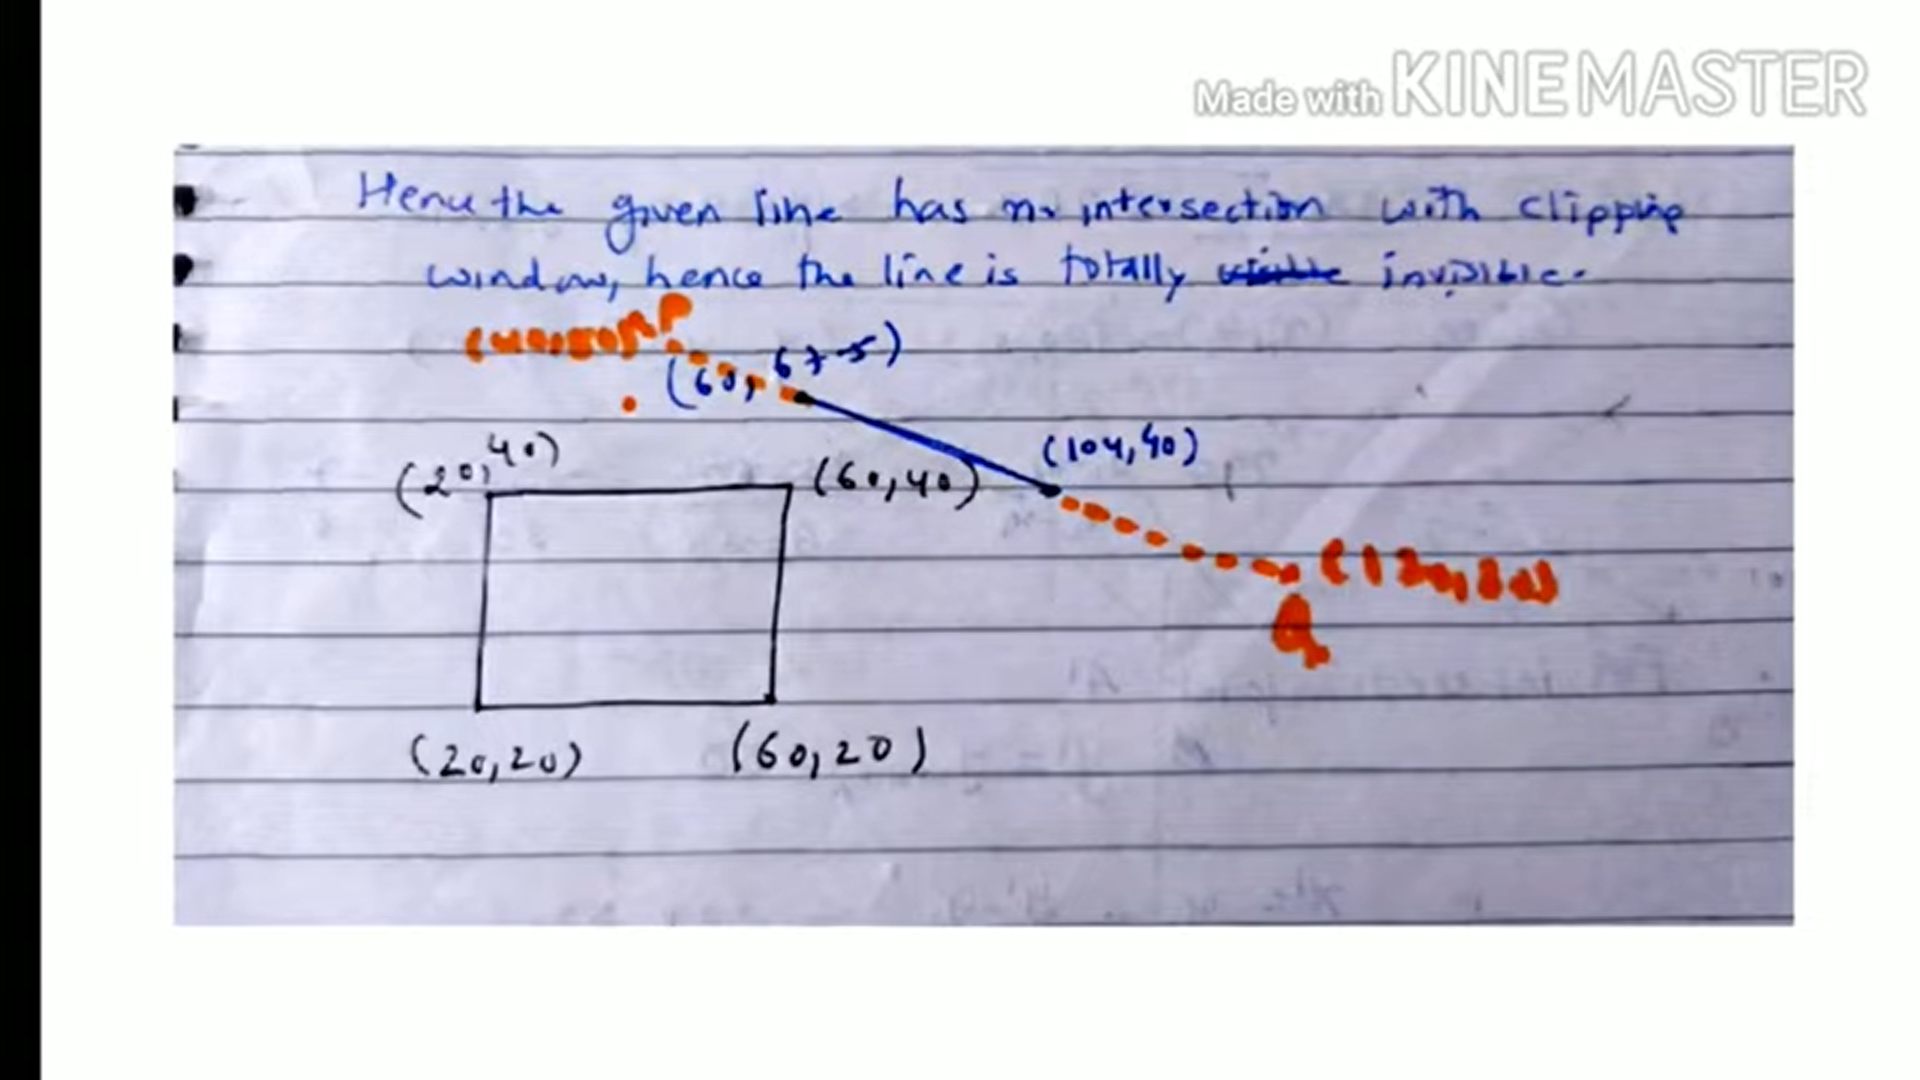 Made with KINEMASTER
Hence the given line has no intersection with clipping
window, hence the line is totally invisible.
P
(60, 67.5)
(104,40)
(20,40)
(60,40)
Q
(20,20)
(60,20)